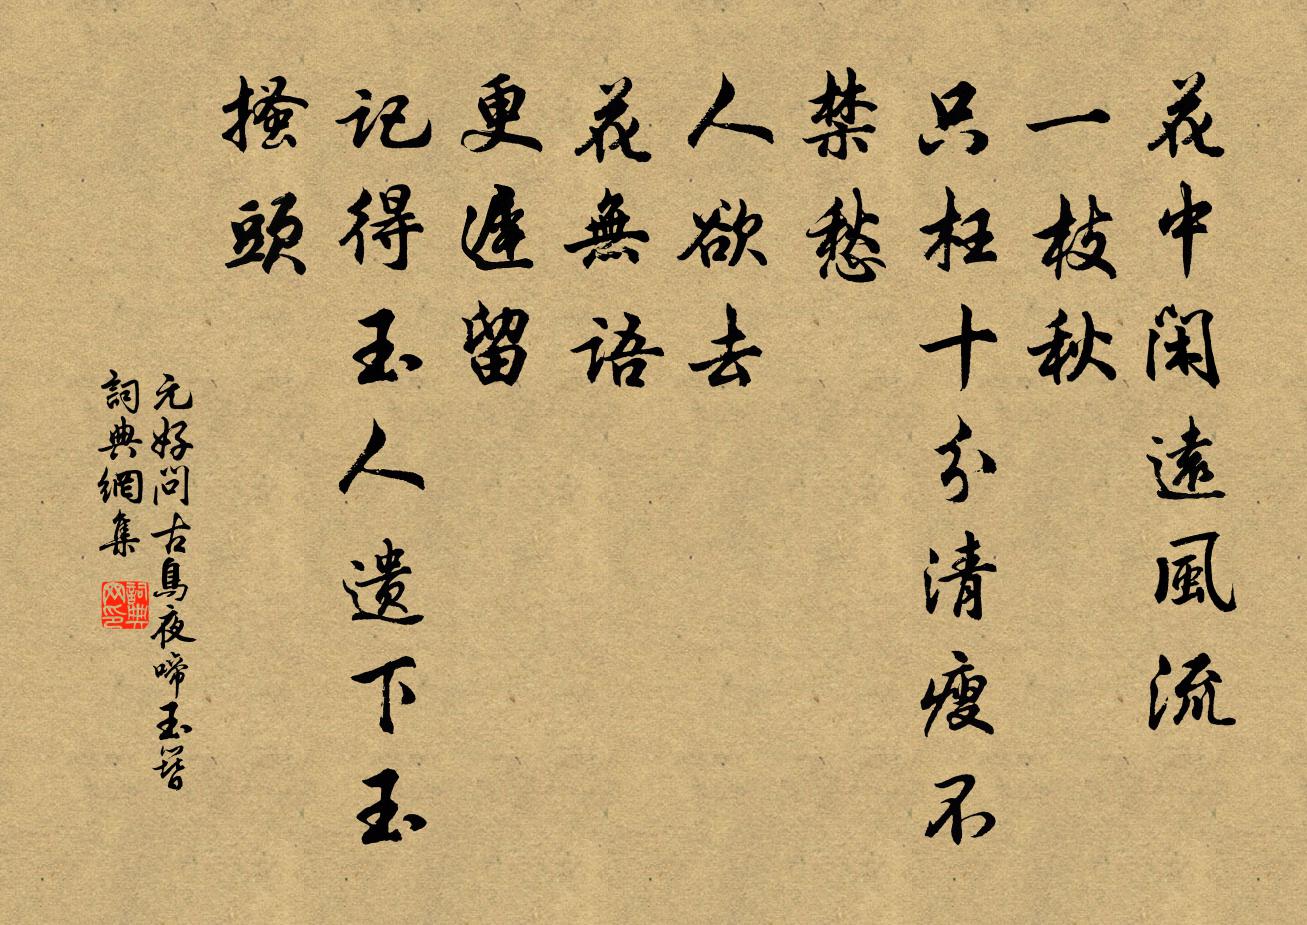 花中閑遠風流
一枝秋
只枉十分清瘦不
禁愁
人欲去
花無語
更遲留
記得玉人遺下玉
搔頭
元好問古鳥夜啼玉簪
詞典網集
詞典网印